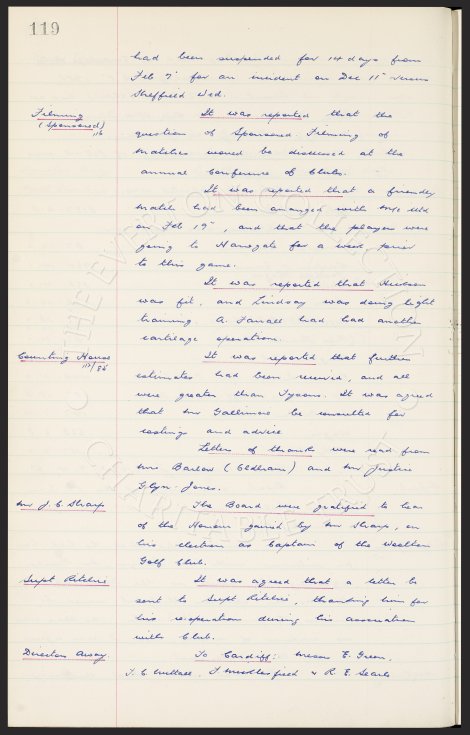 119
had been suspended for 14 days from
Feb 7th for an incident on Dec 11th versus
Sheffield Wed.
Filming
(Sponsored)
It was reported that the
question of Sponsored Filming of
matches would be discussed at the
annual Conference of Clubs.
It was reported that a friendly
match had been arranged with M/c Utd
on Feb 19th, and that the players were
going to Harrogate for a week prior
to this game.
It was reported that Hudson
was fit, and Lindsay was doing light
training. A. Farrall had had another
cartilage operation.
Counting House
It was reported that further
estimates had been received, and all
were greater than Tysons. It was agreed
that Mr Gallimore be consulted for
costings and advice
Letters of thanks were read from
Mrs Barlow (Oldham) and Mr Justice
Glyn-Jones.
Mr J. C. Sharp
The Board were gratified to hear
of the Honour gained by Mr Sharp, on
his election as Captain of the Woolton
Golf Club.
Supt Ritchie
It was agreed that a letter be
sent to Supt Ritchie, thanking him for
his co-operation during his association
with Club.
Directors Away
To Cardiff: Messrs E. Green,
F. Micklesfield & R. E. Searle
THE EVERTON COLLECTION
CHARITABLE TRUST